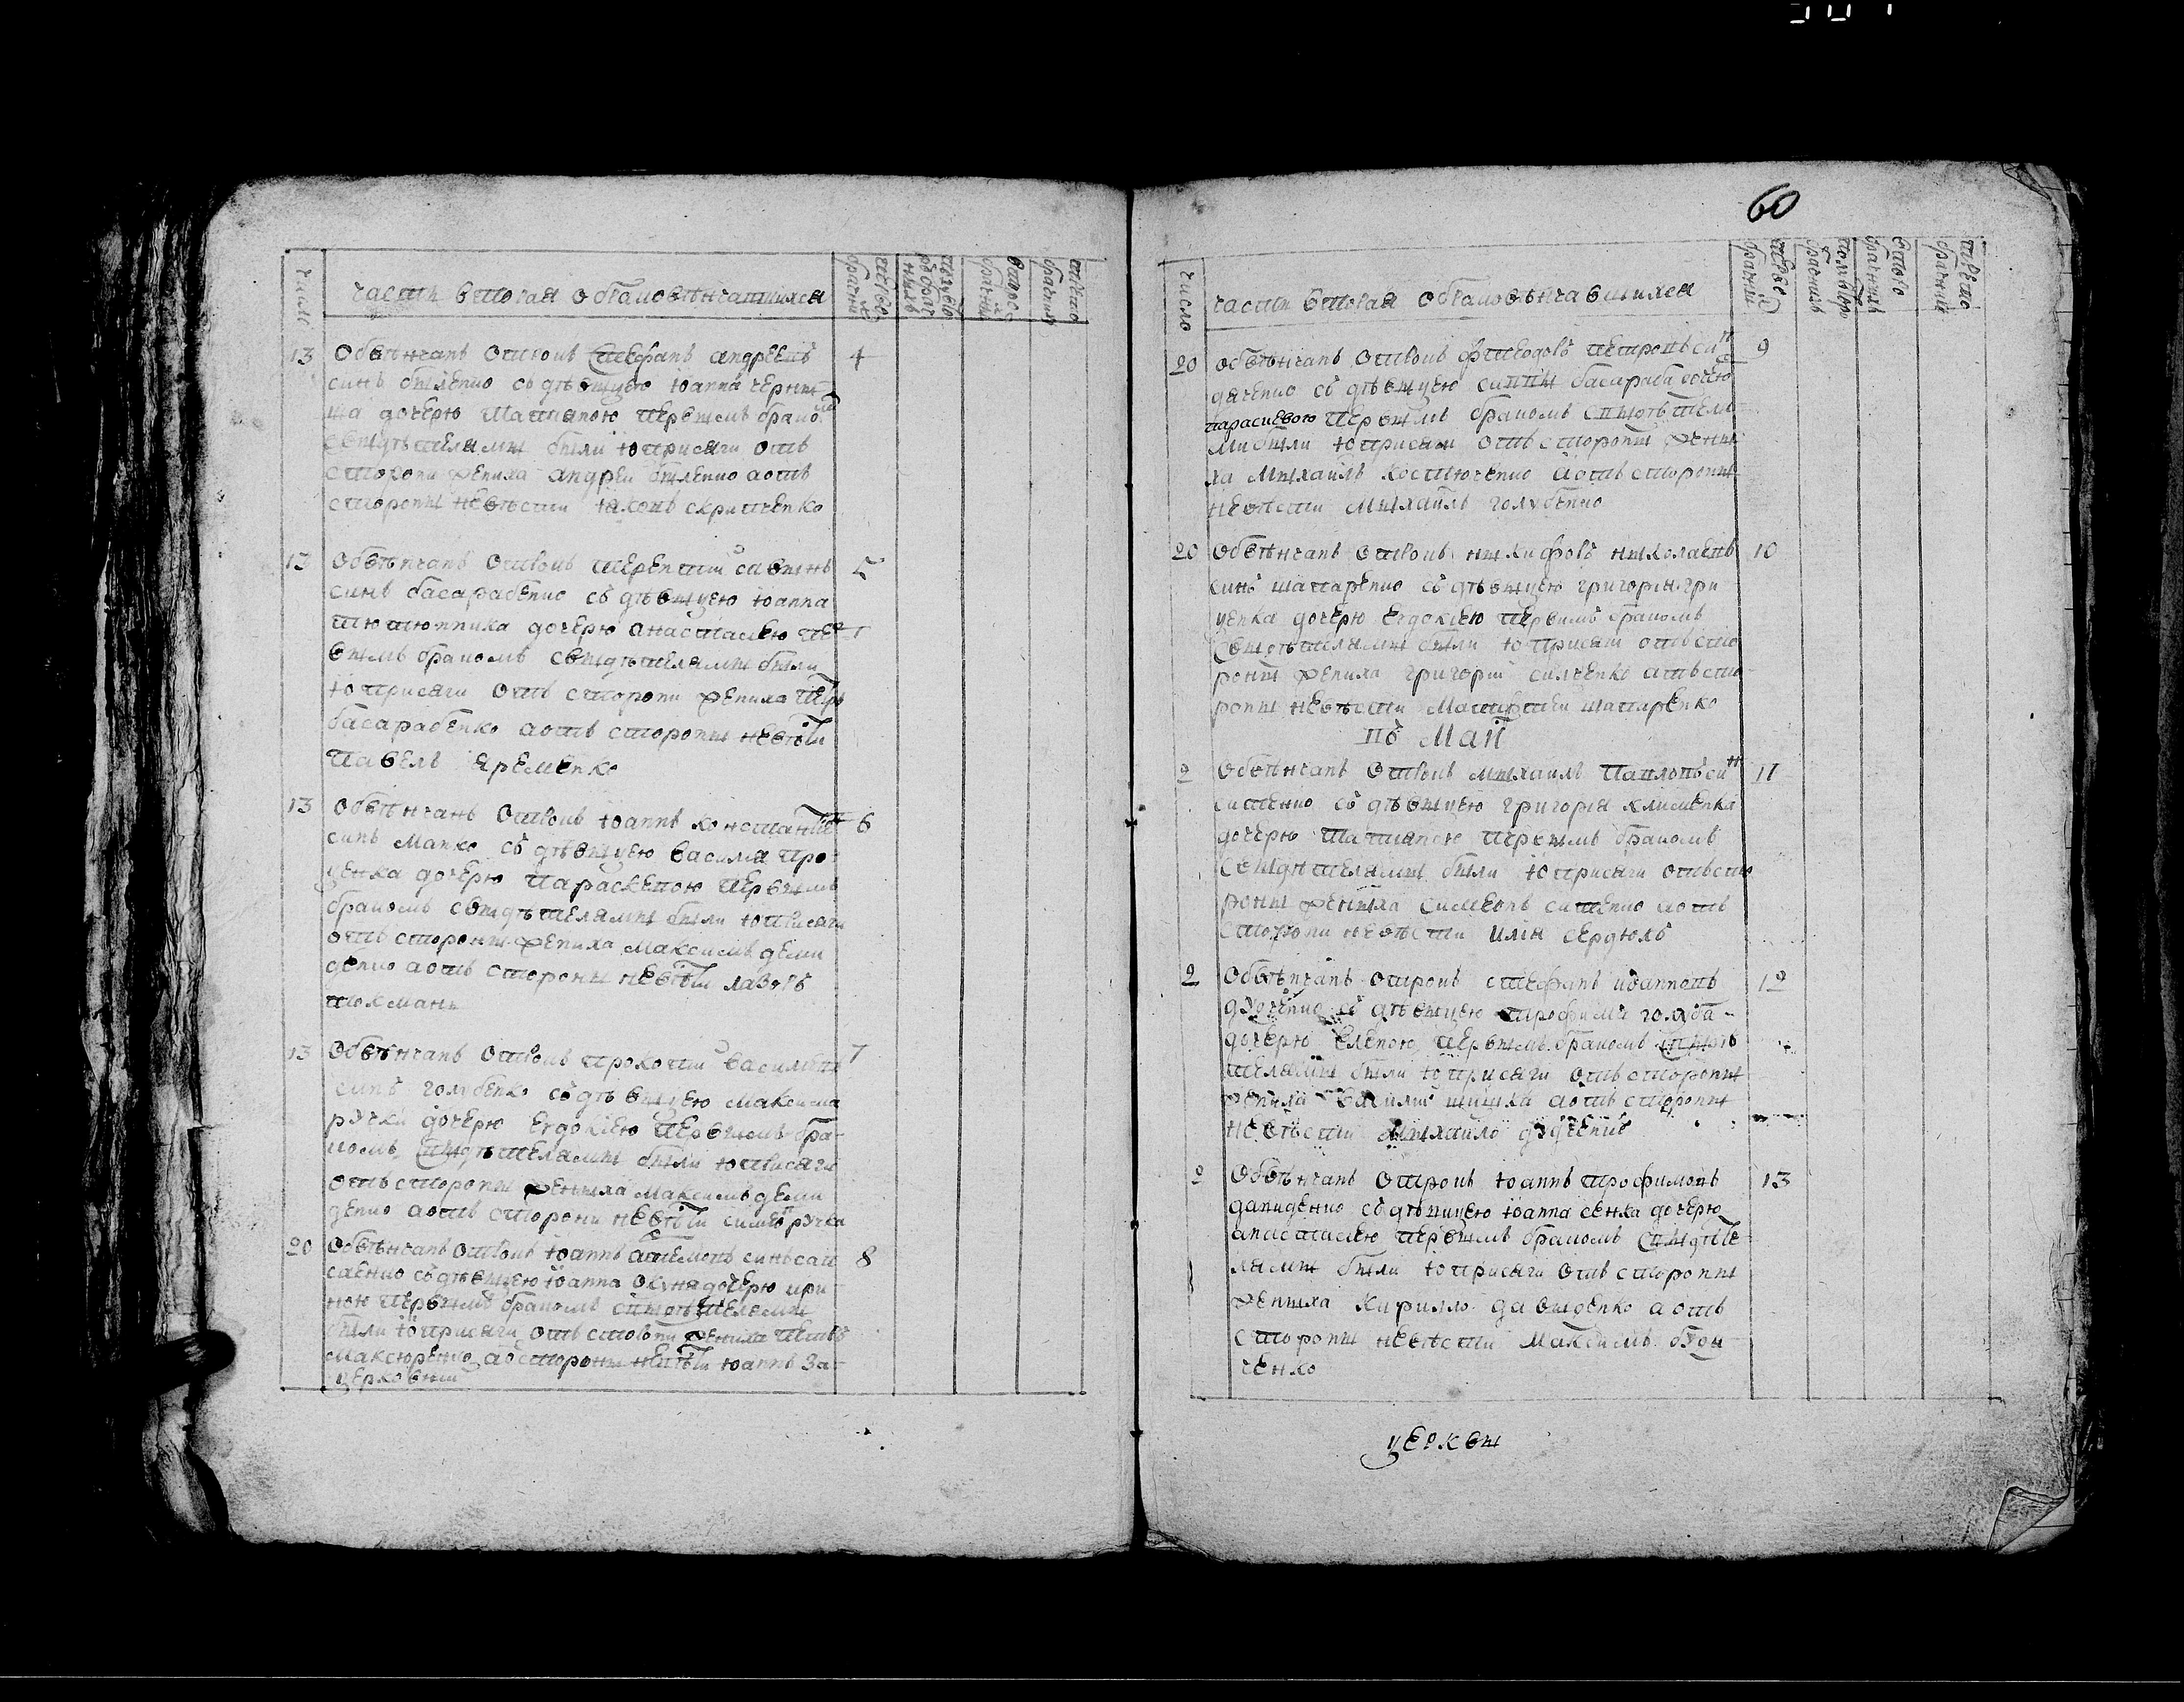 60
число
часть вторая о браковѣнчавшихся
13 Обвѣнчанъ отрокъ Стефанъ андреевъ 4
синъ биленко съ дѣвицею Іоанна черни
ша дочерю татияною первимъ бракомъ
свидѣтелями были и присяги отъ
сторони жениха андрей биленко а отъ
сторони невѣсти яковъ скрипченко
13 Обвѣнчанъ отрокъ терентий савинъ 5
синъ басарабенко съ дѣвицею Іоанна
тютюнника дочерю анастасиею пер
вимъ бракомъ свидѣтелями были
и присяги отъ сторони жениха петръ
басарабенко а отъ сторони невѣсти
павелъ яременко
13 Обвѣнчанъ отрокъ Іоаннъ константи 6
синъ манко съ дѣвицею василия про
ценка дочерю параскевою первимъ
бракомъ свидѣтелями были и присяги
отъ сторони жениха максимъ деми
денко а отъ сторони невѣсти лазоръ
13 Обвѣнчанъ отрокъ прокопий василиевъ 7
синъ голубенко съ дѣвицею максима
ручки дочерю евдокиею первимъ бра
комъ свидѣтелями были и присяги
отъ сторони жениха максимъ деми
денко а отъ сторони невѣсти симеонъ ручка
20 Обвѣнчанъ отрокъ Іоаннъ синъ 8
съ дѣвицею Іоанна окуня дочерю ири
ною первимъ бракомъ свидѣтелями
были и присяги отъ сторони жениха петръ
максюренко а отъ сторони невѣсти Іоаннъ за
церковний
число
часть вторая о браковѣнчавшихся
20 обвѣнчанъ отрокъ феодоръ петровъ синъ 9
дяченко съ дѣвицею савви басараба дочерю
параскевою первимъ бракомъ свидѣтеля
ми были и присяги отъ сторони жени
ха михаилъ костюченко а отъ сторони
невѣсти михаилъ голубенко
20 Обвѣнчанъ отрокъ никифоръ николаевъ 10
синъ шапаренко съ дѣвицею григория гри
ценка дочерю евдокиею первимъ бракомъ
свидѣтелями были и присяги отъ сто
рони жениха григорий силченко а отъ сто
рони невѣсти матвѣй шапаренко
въ май
2 Обвѣнчанъ отрокъ михаилъ павловъ синъ 11
ситенко съ дѣвицею григория клименка
дочерю татияною первимъ бракомъ
свидѣтелями были и присяги отъ сто
рони жениха симеонъ ситенко а отъ
сторони невѣсти илия сердюкъ
2 Обвѣнчанъ отрокъ стефанъ иоанновъ 12
дудченко съ дѣвицею трофима голуба
дочерю еленою первимъ бракомъ свидѣ
телями были и присяги отъ сторони
жениха василий шишка а отъ сторони
невѣсти михайло
2 Обвѣнчанъ отрокъ Іоаннъ трофимовъ 13
давиденко съ дѣвицею Іоанна сенка дочерю
анастасиею первимъ бракомъ свидѣте
лями были и присяги отъ сторони
жениха кирилло давиденко а отъ
сторони невѣсти максимъ буд
ченко
церкви